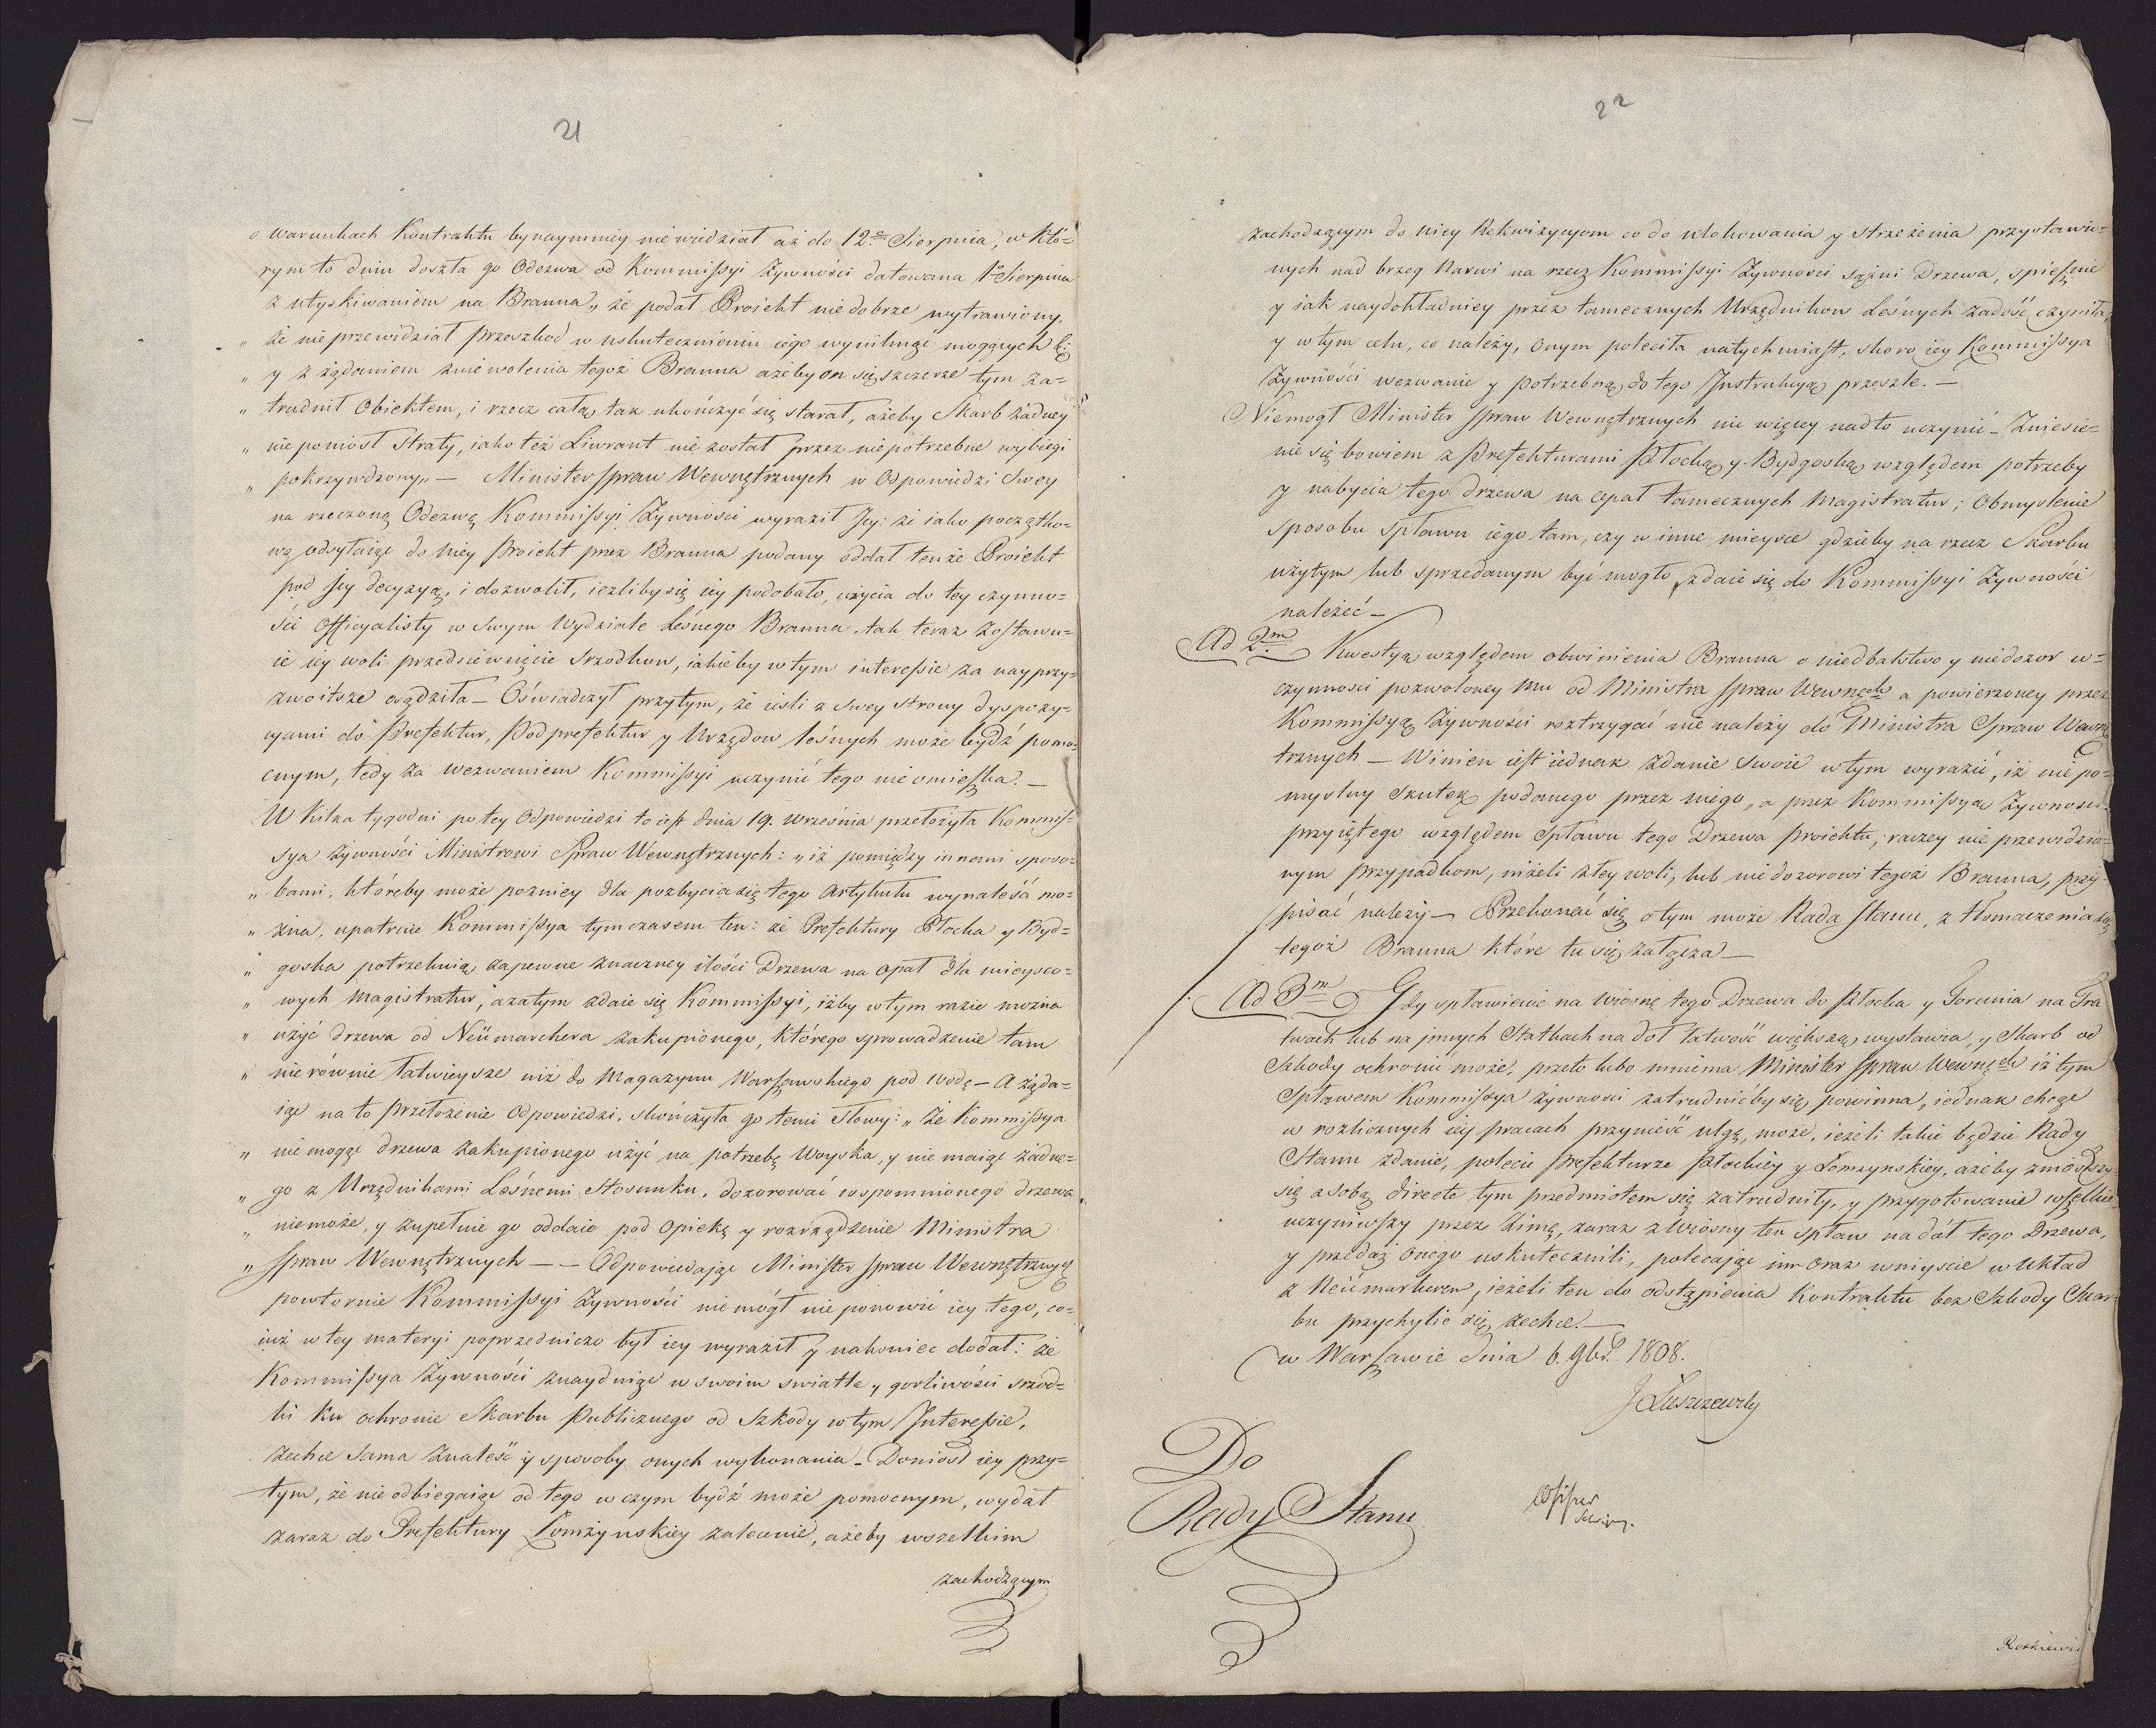 21
o warunkach Kontraktu bynaymniey nie wiedział aż do 12.e Sierpnia, w któ=
rym to dniu doszła go Odezwa od Kommissyi Żywności datowana 1.o Sierpnia
z utyskiwaniem na Branna „ że podał Proiekt nie dobrze wytrawiony,
„ że nie przewidział przeszkod w uskutecznieniu iego wyniknąć mogących &:
„ y z żądaniem zniewolenia tegoż Branna ażeby on się szczerze tym za=
„ trudnił Obiektem, i rzecz całą tak ukończyć się starał, ażeby Skarb żadney
„ nie poniosł Straty, iako też Liwrant nie został przez niepotrzebne wybiegi
„ pokrzywdzony „ — Minister Spraw Wewnętrznych w Odpowiedzi Swey
na rzeczoną Odezwę Kommissyi Żywności wyraził Jey: że iako początko=
wą odsyłaiąc do Niey Proiekt przez Branna podany oddał tenże Proiekt
pod Jey decyzyą, i dozwolił, ieżliby się iey podobało, użycia do tey czynno=
ści Officyalisty w Swym Wydziale Leśnego Branna, tak teraz zostawu=
ie iey woli przedsięwzięcie Srzodkow, iakieby w tym interessie za nayprzy=
zwoitsze osądziła — Oświadczył przytym, że iesli z Swey Strony dyspozy=
cyami do Prefektur, Podprefektur y Urzędow leśnych może bydź pomo=
cnym, tedy za wezwaniem Kommissyi uczynić tego nie omieszka. —
W kilka tygodni po tey Odpowiedzi to iest dnia 19. Września przełożyła Kommis=
sya Żywności Ministrowi Spraw Wewnętrznych: „ iż pomiędzy innemi sposo=
„ bami, któreby może pozniey dla pozbycia się tego Artykułu wynaleść mo=
„ żna, upatruie Kommissya tymczasem ten: że Prefektury Płocka y Byd=
„ goska potrzebuią zapewne znaczney ilości Drzewa na opał dla mieysco=
„ wych Magistratur, a zatym zdaie się Kommissyi, iżby w tym razie można
„ użyć drzewa od Neümarckera zakupionego, którego sprowadzenie tam
„ nierównie łatwieysze niż do Magazynu Warszawskiego pod wodę — A żąda=
iąc na to Przełożenie Odpowiedzi, skończyła go temi Słowy: „ Że Kommissya
„ nie mogąc drzewa zakupionego użyć na potrzebę Woyska, y nie maiąc żadne=
„ go z Urzędnikami Leśnemi Stosunku, dozorować wspomnionego drzewa
„ niemoże, y zupełnie go oddaie pod Opiekę y rozrządzenie Ministra
„ Spraw Wewnętrznych — — Odpowiedaiąc Minister Spraw Wewnętrznych
powtornie Kommissyi Żywności nie mógł nie ponowić iey tego, co=
iuż w tey materyi poprzedniczo był iey wyraził y nakoniec dodał: że
Kommissya Żywności znayduiąc w swoim swiatle y gorliwości srzod=
ki ku ochronie Skarbu Publicznego od Szkody w tym Interessie,
zechce Sama znaleść y sposoby onych wykonania — Doniosł iey przy=
tym, że nie odbiegaiąc od tego w czym bydź może pomocnym, wydał
zaraz do Prefektury Łomżynskiey zalecenie, ażeby wszelkim
zachodzącym
22
zachodzącym do niey Rekwizycyom co do klokowania y strzeżenia przystawio=
nych nad brzeg Narwi na rzecz Kommissyi Żywnosci sążni Drzewa, spiesznie
y iak naydokładniey przez tamecznych Urzędnikow Leśnych zadość czyniła,
y w tym celu, co należy, onym poleciła natychmiast, skoro iey Kommissya
Żywności wezwanie y potrzebną do tego Instrukcyą przeszle. —
Niemogł Minister Spraw Wewnętrznych nic więcey nadto uczynić — Zniesie=
nie się bowiem z Prefekturami Płocką y Bydgoską względem potrzeby
y nabycia tego drzewa na opał tamecznych Magistratur; Obmyslenie
sposobu spławu iego tam, czy w inne mieysce gdzieby na rzecz Skarbu
użytym lub sprzedanym być mogło zdaie się do Kommissyi Żywności
należeć —
Ad 2.m Kwestyą względem obwinienia Branna o niedbalstwo y niedozor w=
czynnosci pozwoloney mu od Ministra Spraw Wewnęch a powierzoney przez
Kommissyą Żywności roztrzygać nie należy do Ministra Spraw Wewnę
trznych — Winien iest iednak zdanie Swoie w tym wyrazić, iż nie po=
myslny Skutek podanego przez niego, a przez Kommissyą Żywnosci
przyiętego względem Spławu tego Drzewa Proiektu, raczey nie przewidzia=
nym Przypadkom, niżeli złey woli, lub niedozorowi tegoż Branna, przy=
pisać należy — Przekonać się o tym może Rada Stanu, z tłomaczenia się
tegoż Branna które tu się załącza —
Ad 3.m Gdy spławienie na wiosnę tego Drzewa do Płocka y Torunia na Tra
twach lub na innych Statkach na doł łatwość większą wystawia, y Skarb od
Szkody ochronić może, przeto lubo mniema Minister Spraw Wewnęch iż tym
Spławem Kommissya Żywnosci zatrudnićby się powinna, iednak chcąc
w rozlicznych iey pracach przynieść ulgę, może, ieżeli takie będzie Rady
Stanu zdanie, polecić Prefekturze Płockiey y Łomżynskiey, ażeby zniosłszy
się z sobą directe tym przedmiotem się zatrudniły, y przygotowanie wszelkie
uczyniwszy przez Zimę, zaraz z Wiosny ten spław na dół tego Drzewa,
y przedaż onego uskutecznili, polecaiąc im oraz wniyscie w Układ
z Neümarkerem, ieżeli ten do odstąpienia Kontraktu bez Szkody Skar
bu przychylić się zechce. —
w Warszawie dnia 6. 9br. 1808.
J Łuszczewsky
Do
Rady Stanu